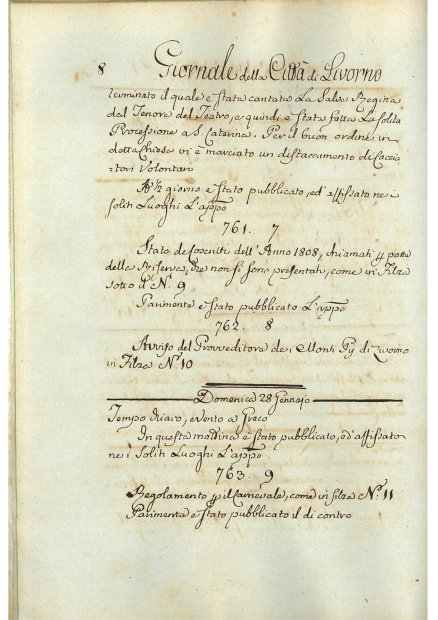 8 Giornale della Città di Livorno
luminato il quale è stata cantata La Salve Regina
dal Tenore del Teatro, e quindi è stata fatta La Solita
Processione a S. Caterina. Per il buon ordine in
detta Chiesa vi è marciato un distaccamento di Caccia
tori Volontari
A ½ giorno è stato pubblicato, ed affissato ne i
soliti Luoghi L'appo
761. 7
Stato de Coscritti dell'Anno 1808, chiamati p parte
della Riserva, che non si sono presentati, come in Filza
sotto d N. 9
Parimente è stato pubblicato L'appo
762. 8
Avviso del Provveditore de i Monti Pij di Livorno
in Filza N. 10
Domenica 28 Gennajo
Tempo chiaro, e vento a Greco
In questa mattina è stato pubblicato, ed affissato
ne i Soliti Luoghi L'appo
763. 9
Regolamento p il Carnevale, come in filza N. 11
Parimente è stato pubblicato il di contro